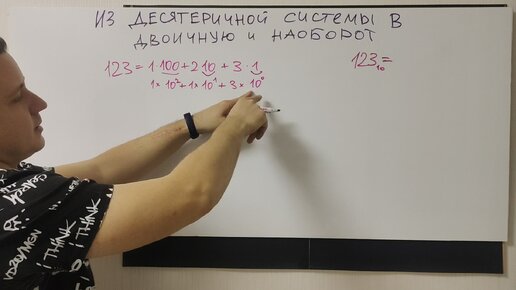 ИЗ ДЕСЯТЕРИЧНОЙ СИСТЕМЫ В
ДВОИЧНУЮ И НАОБОРОТ
123 = 1·100 + 2·10 + 3·1
1×10²+1×10¹+3×10⁰
123₁₀=
I THINK
I THINK
VDGAY/MGN